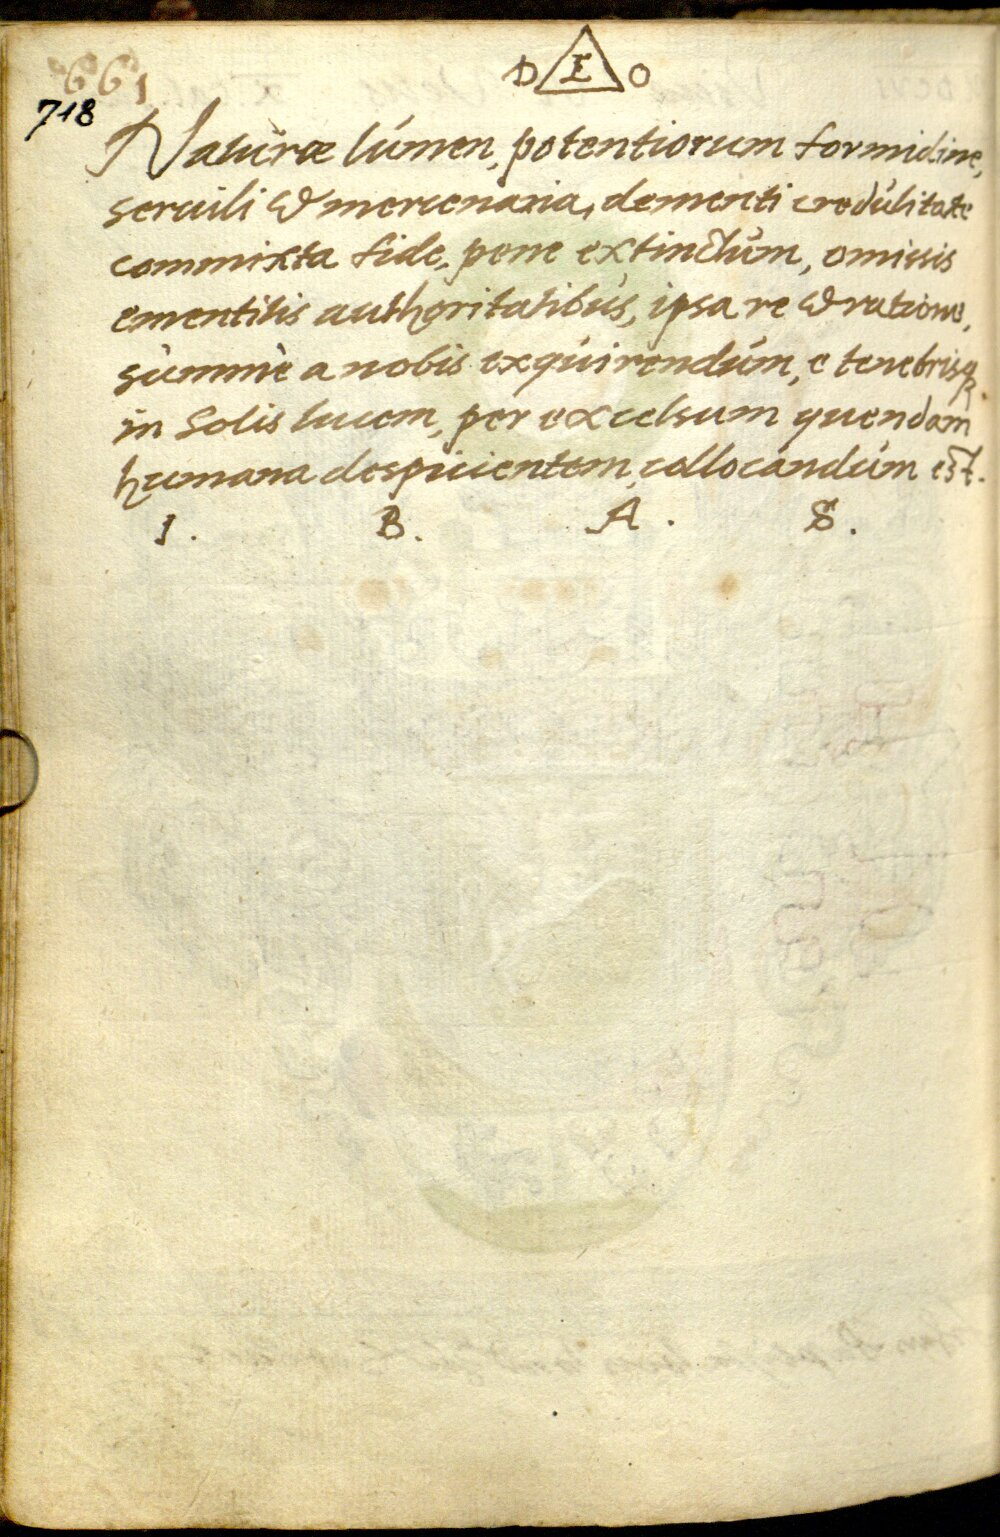 661
718
D E O
Naturæ lúmen, potentiorum formidine,
seruili & mercenaria, dementi credúlitate
commixta fide, pene extinctúm, omissis
ementitis authoritatibús, ipsa re & ratione,
súmmè a nobis exqúirendúm, e tenebrisq.
in Solis lucem, per excelsum quendam
humana despicientem, collocandúm est.
I. B. A. S.